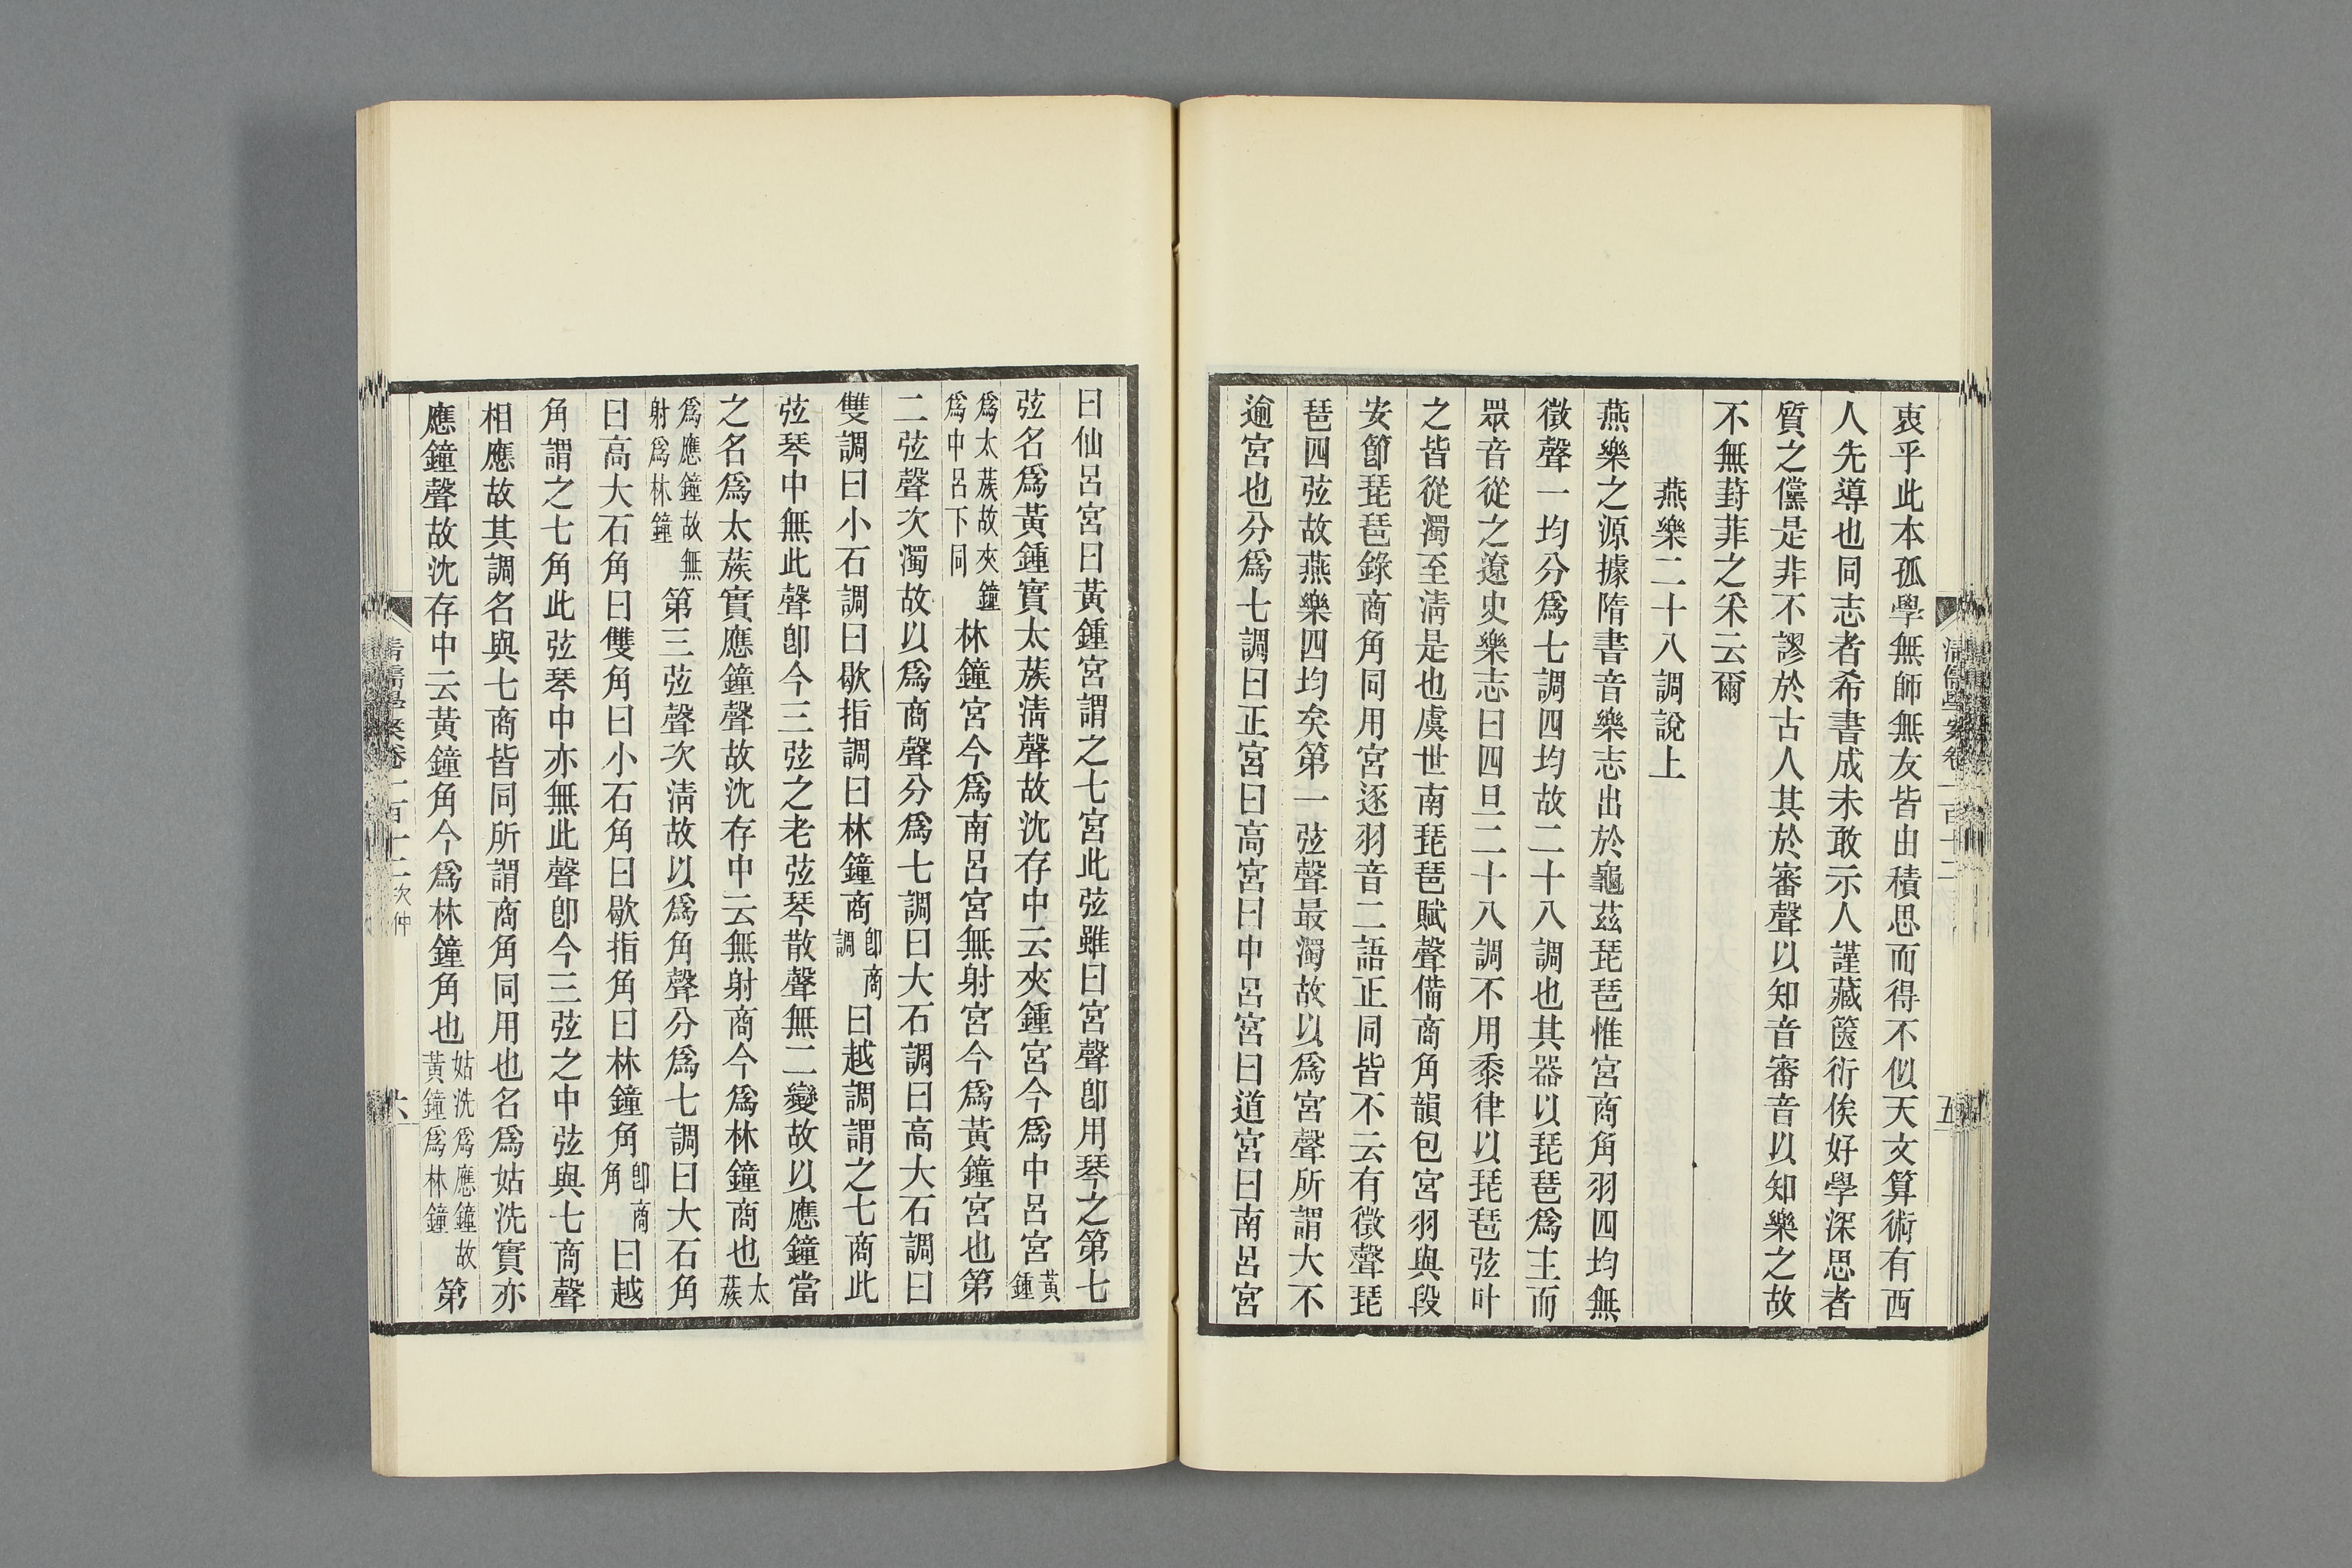 衷乎此本孤學無師無友皆由積思而得不似天文算術有西
人先導也同志者希書成未敢示人謹藏篋衍俟好學深思者
質之儻是非不謬於古人其於審聲以知音審音以知樂之故
不無葑菲之采云爾
燕樂二十八調說上
燕樂之源據隋書音樂志出於龜茲琵琶惟宮商角羽四均無
徵聲一均分爲七調四均故二十八調也其器以琵琶爲主而
眾音從之遼史樂志曰四旦二十八調不用黍律以琵琶弦叶
之皆從濁至淸是也虞世南琵琶賦聲備商角韻包宮羽與段
安節琵琶錄商角同用宮逐羽音二語正同皆不云有徵聲琵
琶四弦故燕樂四均矣第一弦聲最濁故以爲宮聲所謂大不
逾宮也分爲七調曰正宮曰高宮曰中呂宮曰道宮曰南呂宮
清儒學案卷一百十二
五
曰仙呂宮曰黃鍾宮謂之七宮此弦雖曰宮聲卽用琴之第七
弦名爲黃鍾實太蔟淸聲故沈存中云夾鍾宮今爲中呂宮黃鍾
爲太蔟故夾鐘爲中呂下同林鐘宮今爲南呂宮無射宮今爲黃鐘宮也第
二弦聲次濁故以爲商聲分爲七調曰大石調曰高大石調曰
雙調曰小石調曰歇指調曰林鐘商卽商調曰越調謂之七商此
弦琴中無此聲卽今三弦之老弦琴散聲無二變故以應鐘當
之名爲太蔟實應鐘聲故沈存中云無射商今爲林鐘商也太蔟
爲應鐘故無射爲林鐘第三弦聲次淸故以爲角聲分爲七調曰大石角
曰高大石角曰雙角曰小石角曰歇指角曰林鐘角卽商角曰越
角謂之七角此弦琴中亦無此聲卽今三弦之中弦與七商聲
相應故其調名與七商皆同所謂商角同用也名爲姑洗實亦
應鐘聲故沈存中云黃鐘角今爲林鐘角也姑洗爲應鐘故黃鐘爲林鐘第
清儒學案卷一百十二 次仲
六